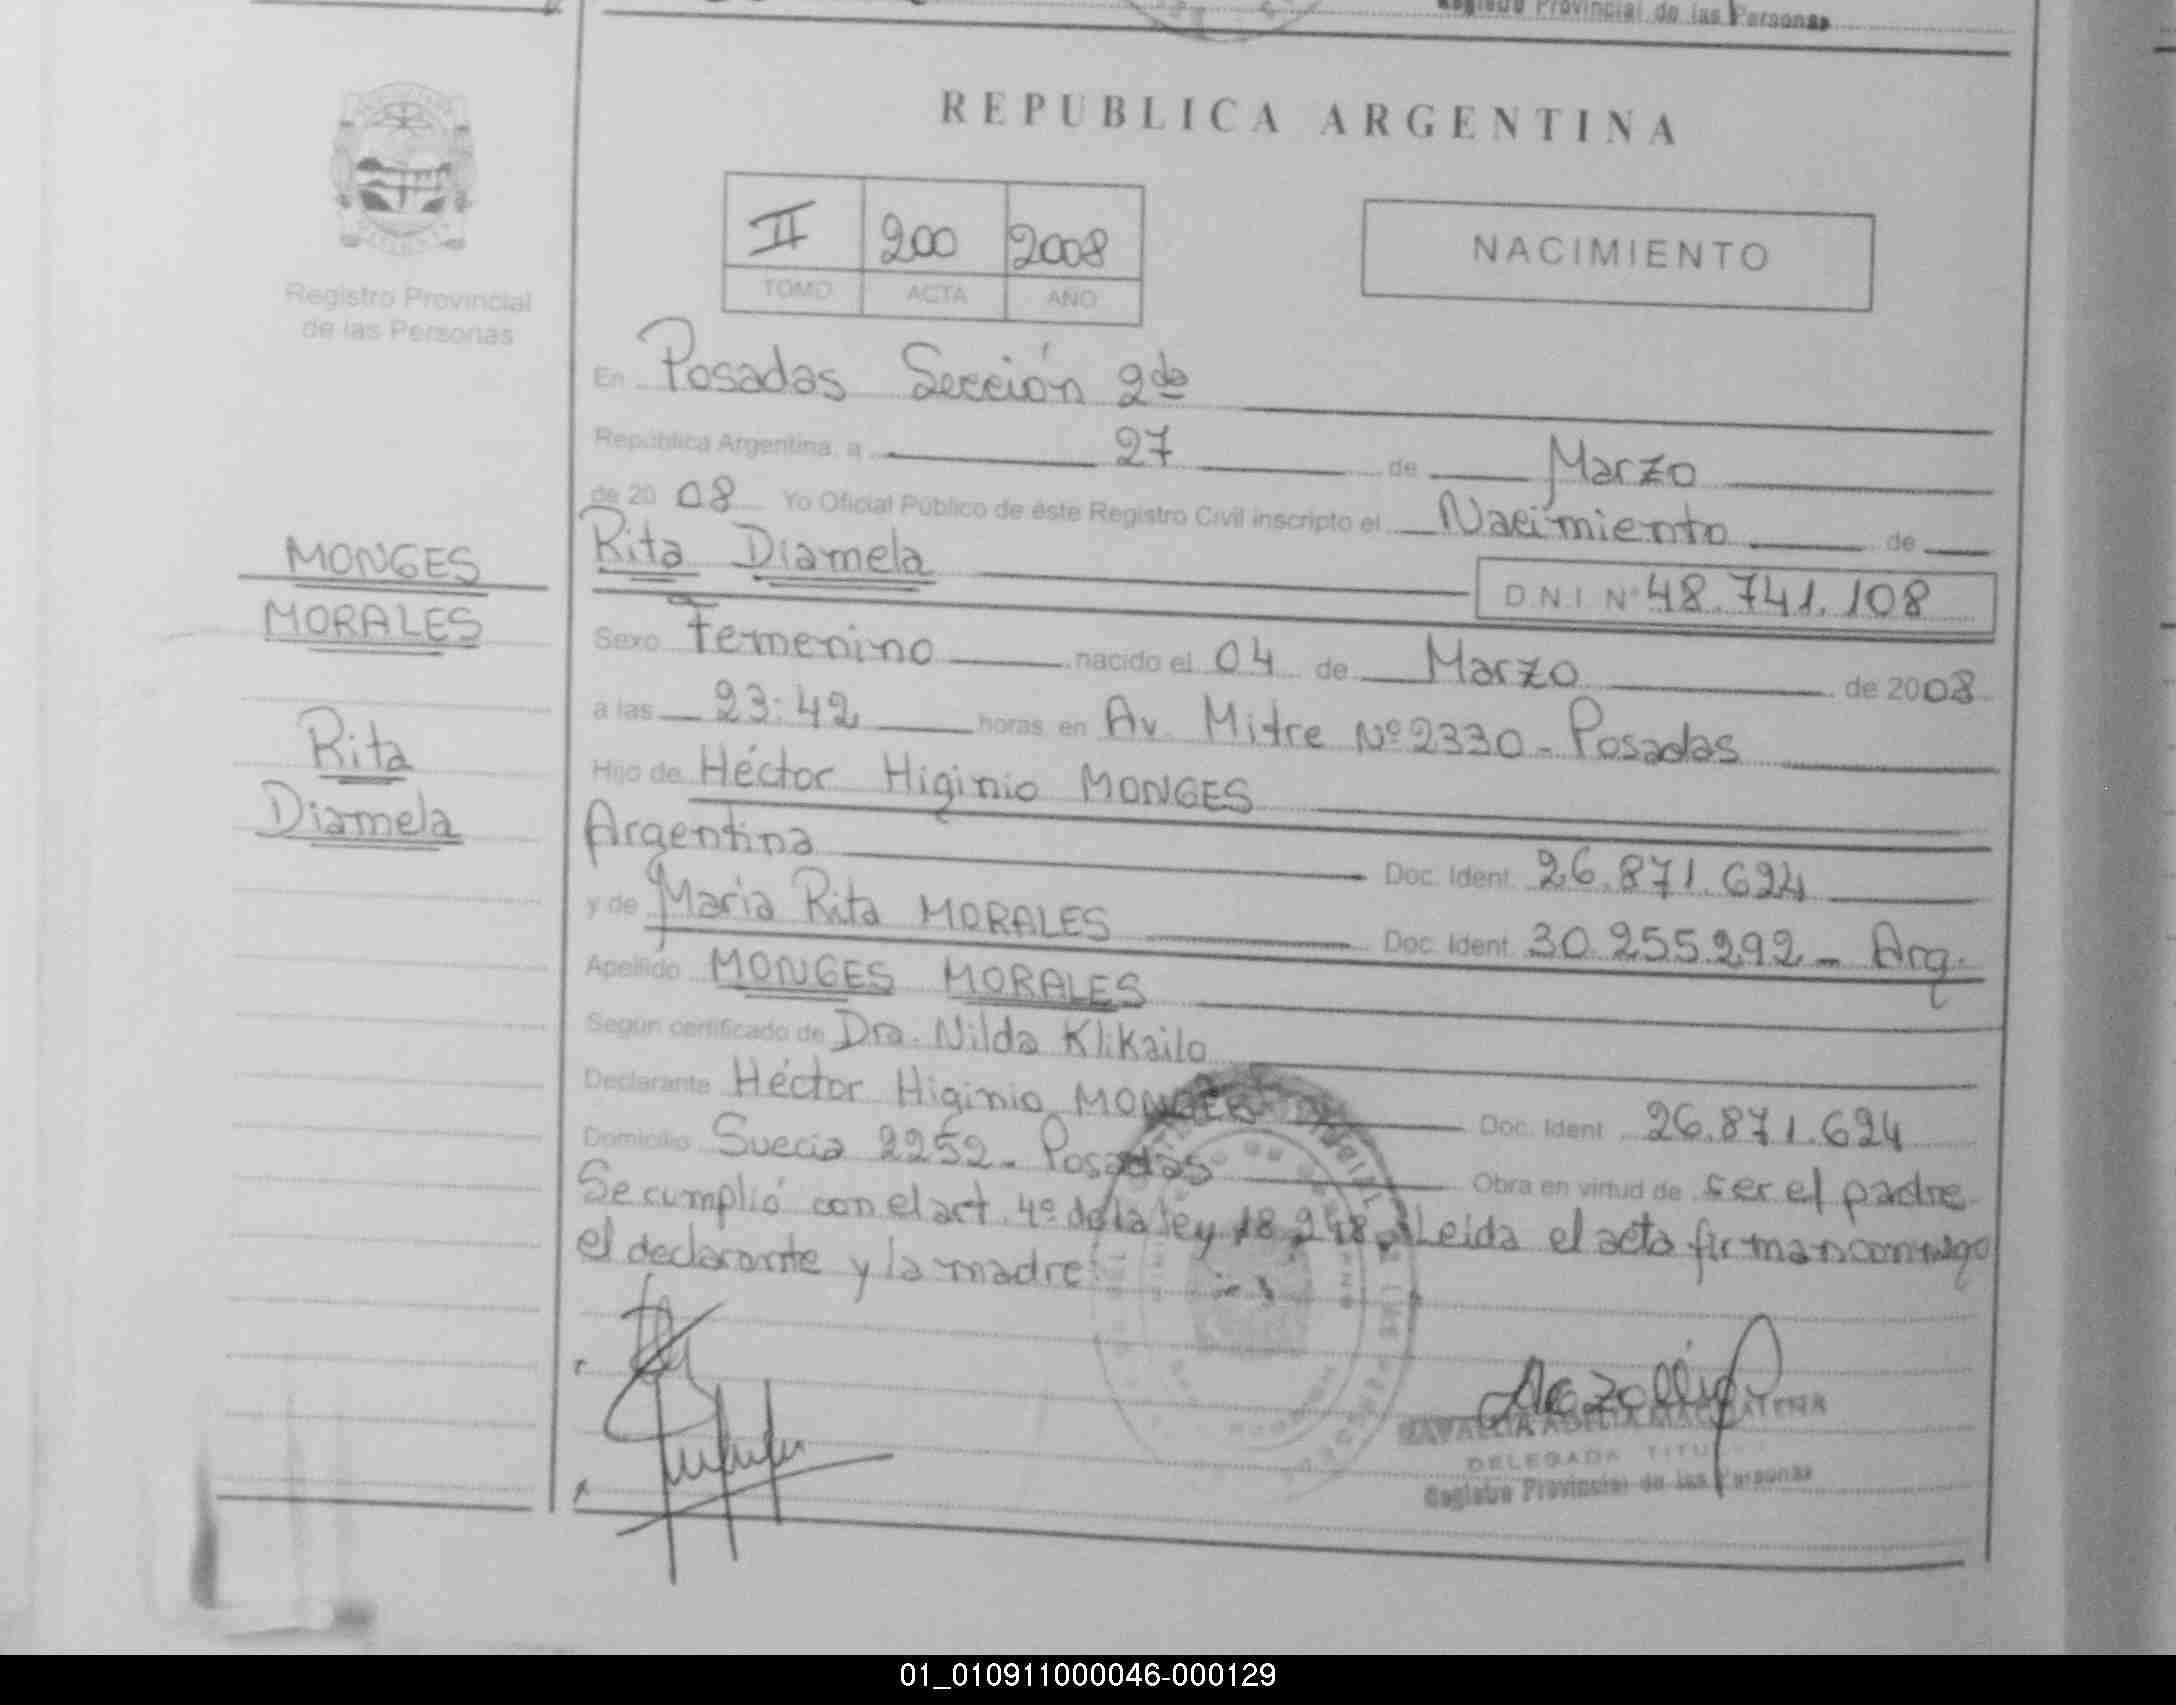 Registro Provincial de las Personas
REPUBLICA ARGENTINA
II 200 2008
TOMO ACTA AÑO
NACIMIENTO
Registro Provincial
de las Personas
MONGES
MORALES
Rita
Diamela
En Posadas Sección 2da
República Argentina, a 27 de Marzo
de 2008 Yo Oficial Público de éste Registro Civil inscripto el Nacimiento de
Rita Diamela D.N.I. Nº 48.741.108
Sexo Femenino nacido el 04 de Marzo de 2008
a las 23:42 horas en Av. Mitre Nº 2330 - Posadas
Hijo de Héctor Higinio MONGES
Argentina Doc. Ident. 26.871.624
y de Maria Rita MORALES Doc. Ident. 30.255.292 - Arg.
Apellido MONGES MORALES
Según certificado de Dra. Nilda Klikailo
Declarante Héctor Higinio MONGES Doc. Ident. 26.871.624
Domicilio Suecia 2252 - Posadas Obra en virtud de ser el padre
Se cumplió con el art. 4º de la ley 18.248. Leida el acta firman conmigo
el declarante y la madre.
DELEGADA
Registro Provincial de las Personas
01_010911000046-000129